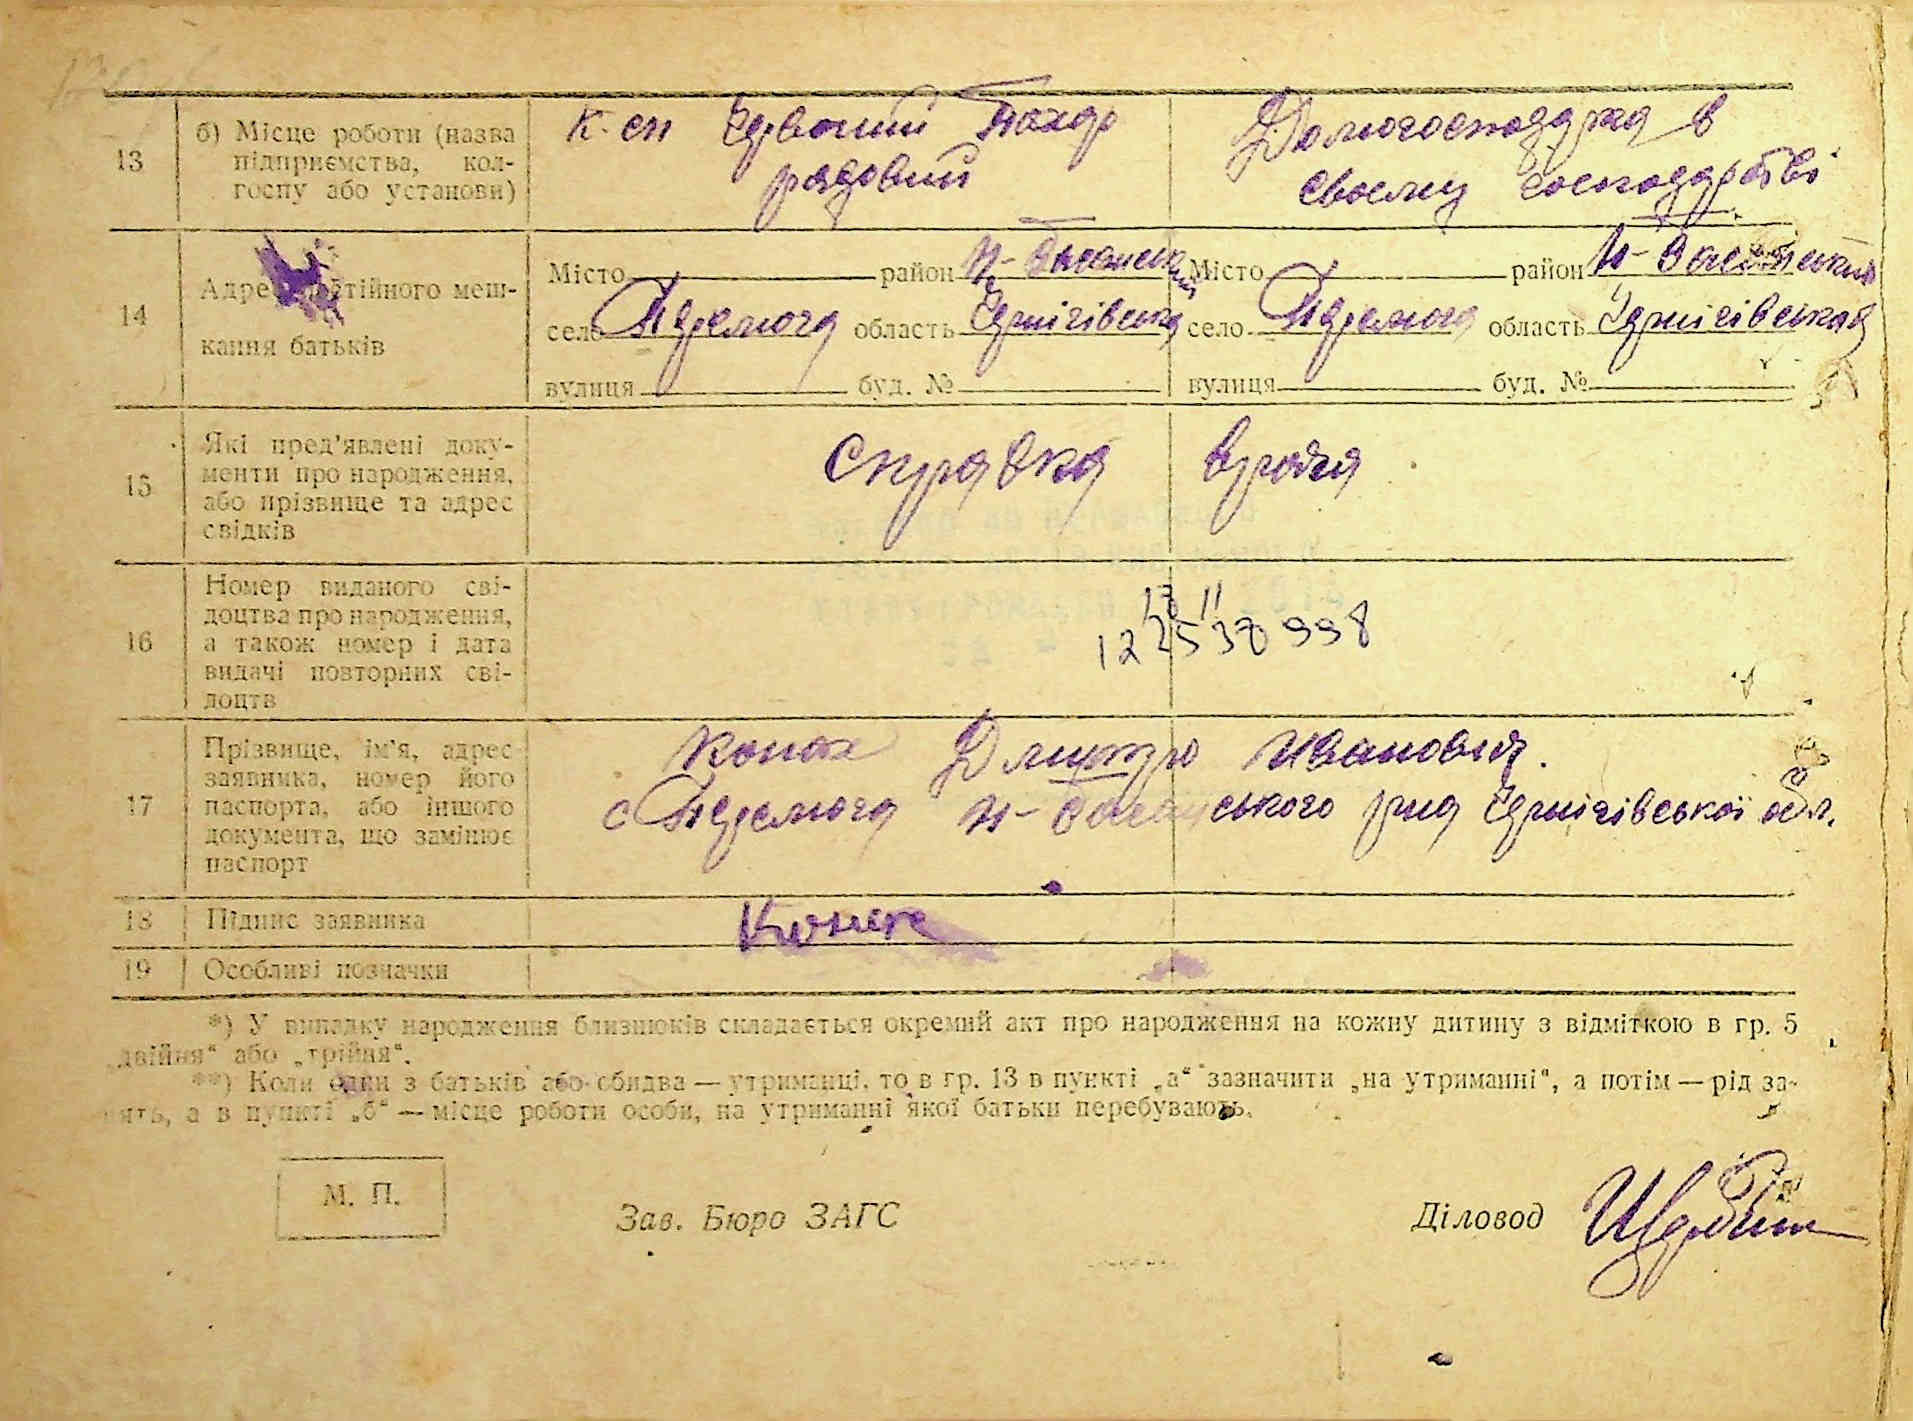 13
б) Місце роботи (назва
підприємства, кол-
госпу або установи)
к-сп Червоний Пахар
рядовий
Домогосподарка в
своєму господарстві
14
Адрес постійного меш-
кання батьків
Місто район Н-Басанський
село Перемога область Чернігівська
вулиця буд. №
Місто район Н-Басанський
село Перемога область Чернігівська
вулиця буд. №
15
Які пред'явлені доку-
менти про народження,
або прізвище та адрес
свідків
Справка врача
16
Номер виданого сві-
доцтва про народження,
а також номер і дата
видачі повторних сві-
доцтв
17
Прізвище, ім'я, адрес
заявника, номер його
паспорта, або іншого
документа, що замінює
паспорт
Конах Дмитро Иванович.
с Перемога Н-Басанського р-на Чернігівської обл.
18
Підпис заявника
Конах
19
Особливі позначки
*) У випадку народження близнюків складається окремий акт про народження на кожну дитину з відміткою в гр. 5
„двійня“ або „трійня“.
**) Коли один з батьків або обидва — утриманці, то в гр. 13 в пункті „а“ зазначити „на утриманні“, а потім — рід за-
нять, а в пункті „б“ — місце роботи особи, на утриманні якої батьки перебувають.
М. П.
Зав. Бюро ЗАГС
Діловод